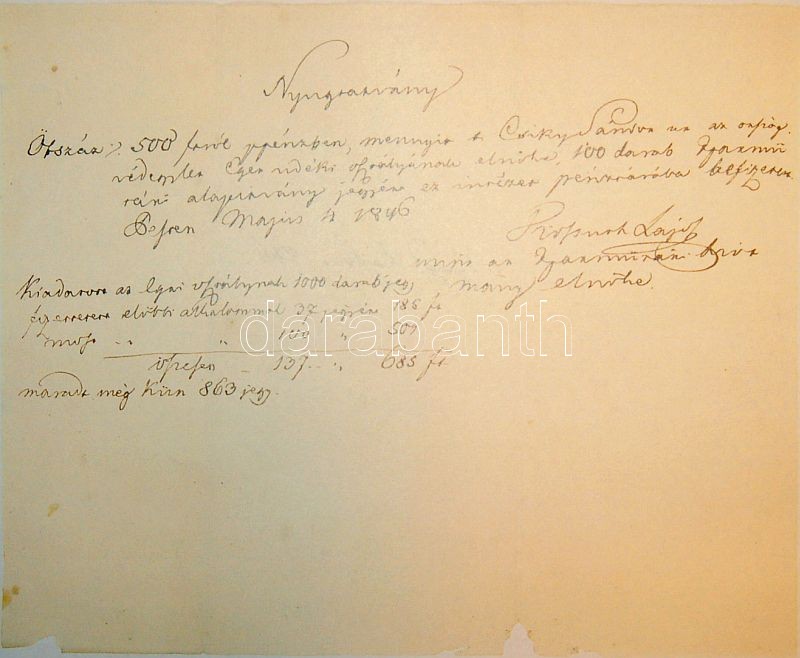 Nyugtatvány
Ötszáz /: 500 ftról ppénzben, mennyit t. Csiky Sándor ur az országo.
védegylet Eger vidéki osztályának elnöke, 100 darab Gyármű
tári alapitvány jegyére ez intézet pénztárába befizetett.
Pesten Május 4 1846
Kossuth Lajos
mint az Gyarmutári bizt
mány elnöke.
Kiadatott az Egri osztálynak 1000 darab jegy
fizettetett előbbi alkalommal 37 jegyért 185 ft
most „ „ 100 „ 500
összesen 137 „ 685 ft
maradt még kün 863 jegy.
darabanth